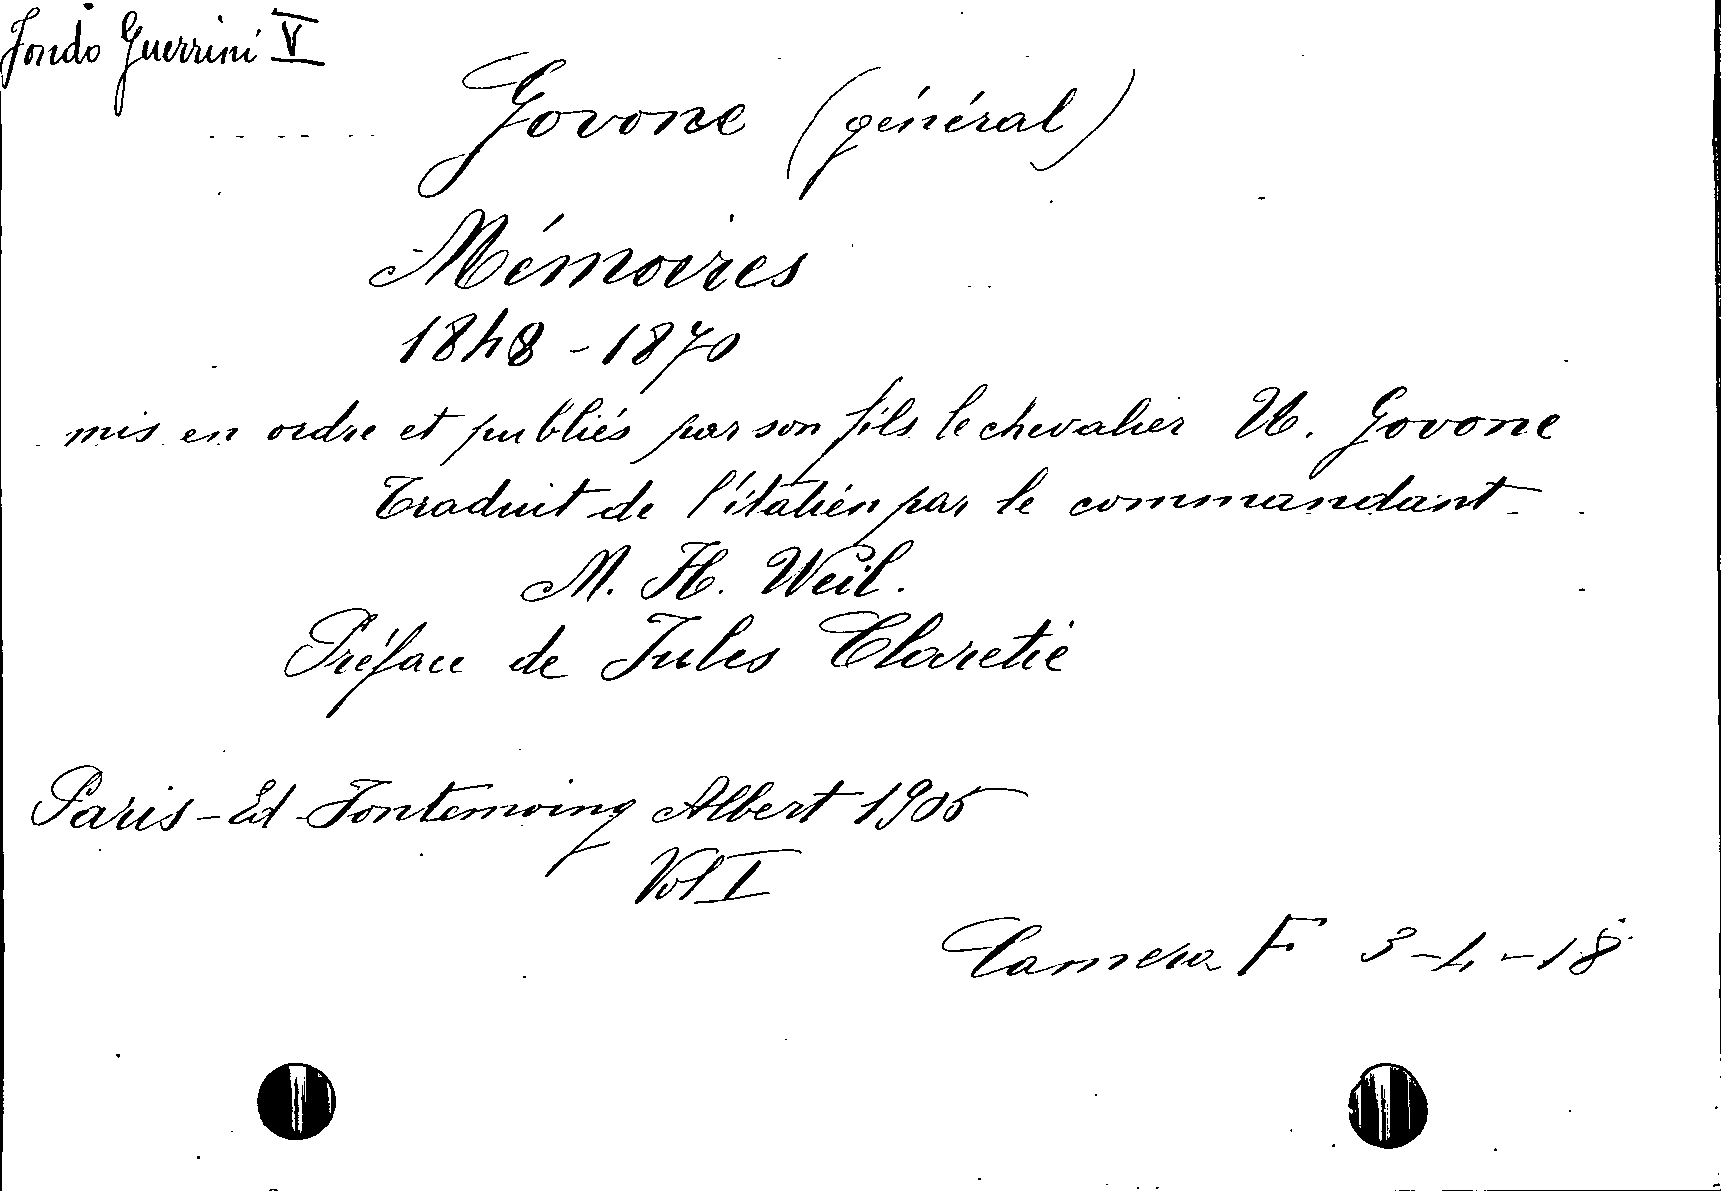 Fondo Guerrini V
Govone (général)
Mémoires
1848 - 1870
mis en ordre et publiés par son fils le chevalier U. Govone
Traduit de l'italien par le commandant
M. H. Weil.
Préface de Jules Claretie
Paris - Ed Fontemoing Albert 1905
Vol I
Camera F 3-4-18